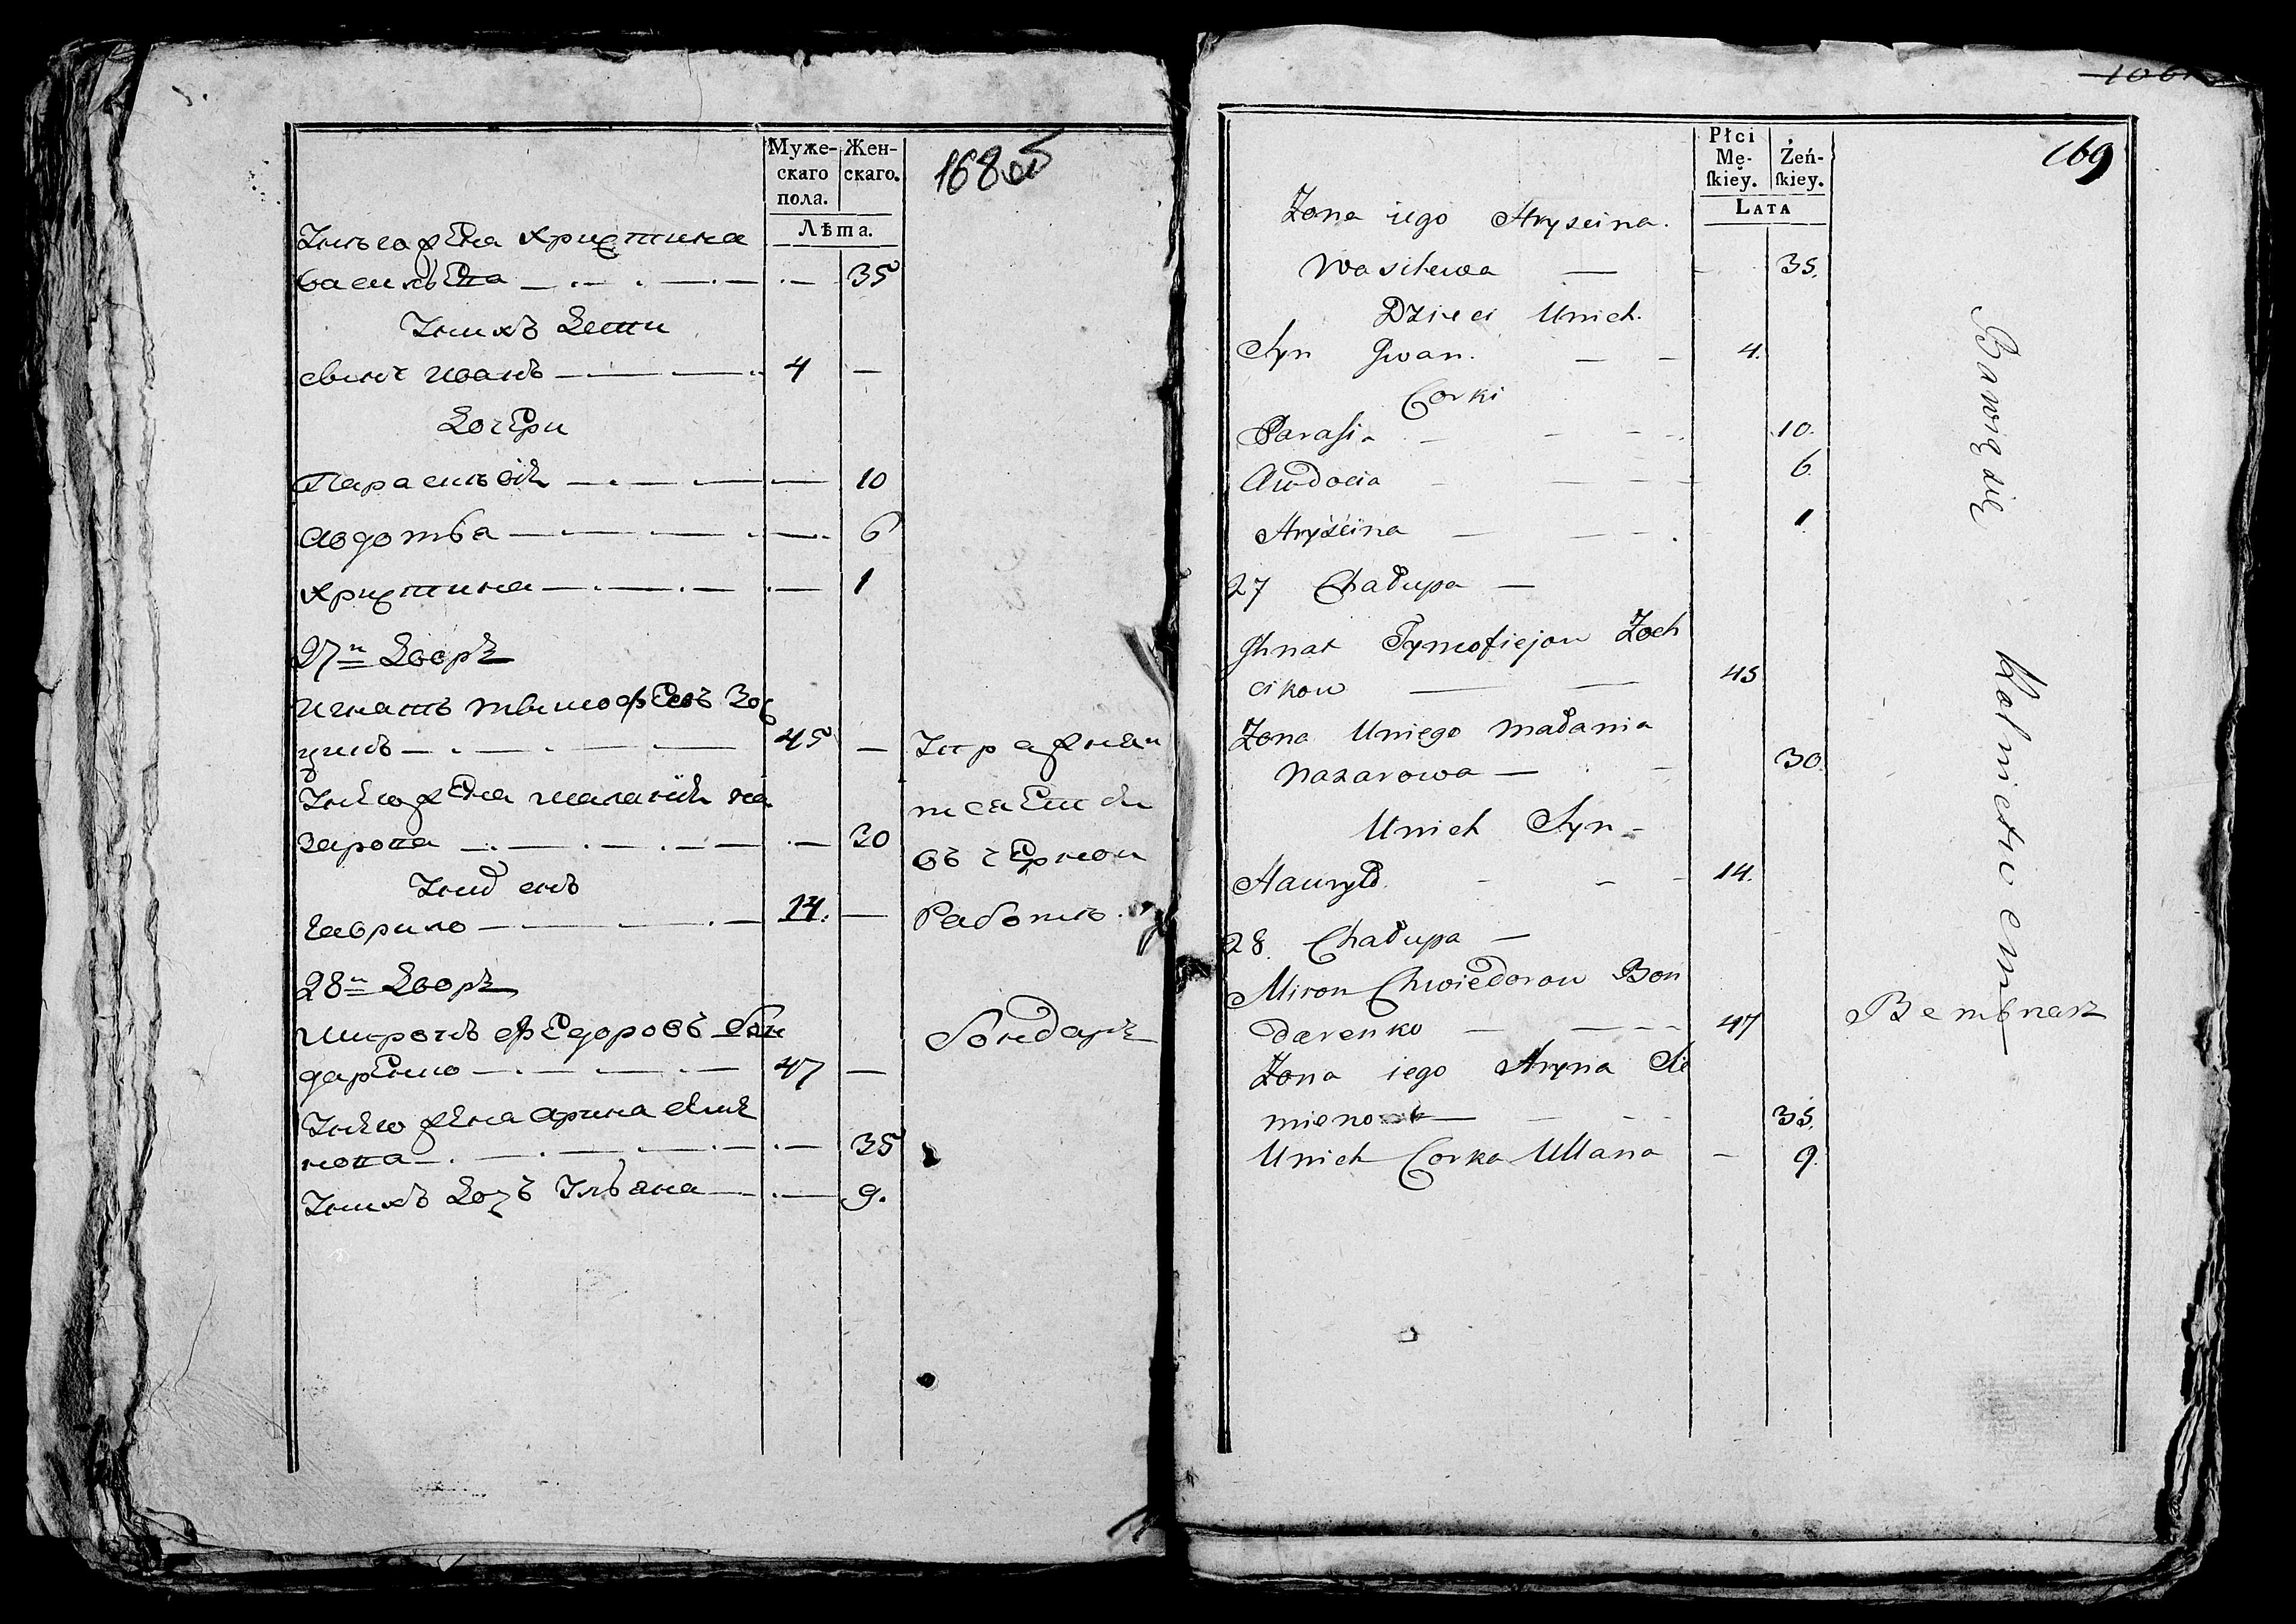 Муже-
скаго
пола.
Жен-
скаго.
Лѣта.
168 об
Унегожена христина
василева 35
Унихъ дети
синъ иванъ 4
дочери
Парасковiя 10
авдотьа 6
христина 1
27й дворъ
игнатъ тимофеевъ Зо
циковъ 45
Унегожена маланiя на
зарова 30
Унихъ синъ
гаврило 14.
28й дворъ
миронъ федоровъ бон
даренко 47
Унегожена арина семе
нова 35
Унихъ дочъ Ульяна 9.
Упражня
тсаеть
въ черной
Работе.
бондарь
106
169
Płci
Mę-
ſkiey.
Żeń-
ſkiey.
LATA
Zona iego Hryscina.
Wasilewa 35.
Dzieci Unich.
Syn Jwan. 4.
Corki
Parasia 10.
Awdocia 6
Hryścina 1
27 Chałupa
Jhnat Tymofiejow Zoch
cikow 45
Zona Uniego Małania
Nazarowa 30.
Unich Syn
Hawryło. 14.
28. Chałupa
Miron Chwiedorow Bon
darenko 47
Zona iego Aryna Sie
mienowa 35.
Unich Corka Ullana 9.
Bawią się Rolnictwem
Bembnarz